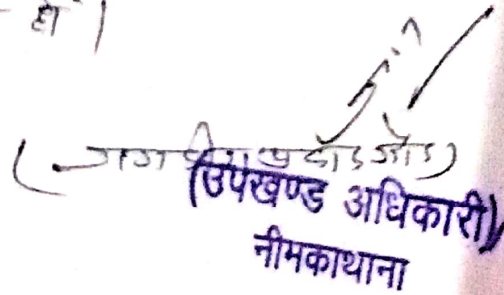 हो।
(जगदीश प्रसाद गौड़)
(उपखण्ड अधिकारी)
नीमकाथाना